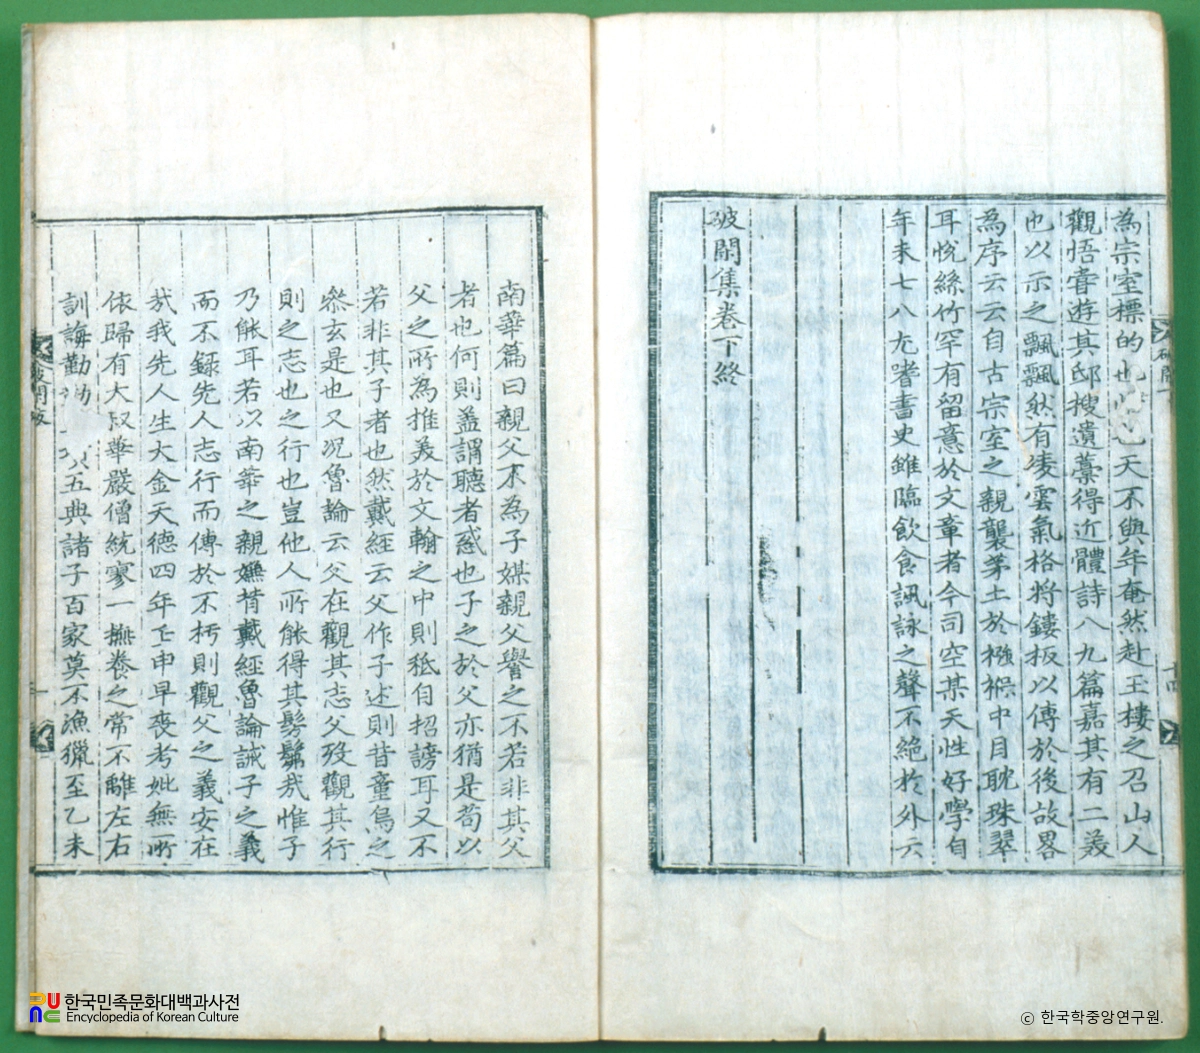 為宗室標的也 天不與年奄然赴玉樓之召山人
觀悟嘗遊其邸搜遺藁得近體詩八九篇嘉其有二義
也以示之飄飄然有凌雲氣格將鏤板以傳於後故畧
為序云云自古宗室之親襲茅土於襁褓中目耽珠翠
耳悅絲竹罕有留意於文章者今司空某天性好學自
年未七八尤嗜書史雖臨飲食諷詠之聲不絕於外云
破閑集卷下終
十四
南華篇曰親父不為子媒親父譽之不若非其父
者也何則盖謂聽者惑也子之於父亦猶是苟以
父之所為推美於文翰之中則秪自招謗耳又不
若非其子者也然戴經云父作子述則昔童烏之
叅玄是也又况魯論云父在觀其志父歿觀其行
則之志也之行也豈他人所能得其髣髴㢤惟子
乃能耳若以南華之親嫌背戴經魯論誡子之義
而不錄先人志行而傳於不朽則觀父之義安在
㢤我先人生大金天德四年壬申早喪考妣無所
依歸有大叔華嚴僧統寥一撫養之常不離左右
訓誨勤 五典諸子百家莫不漁獵至乙未
한국민족문화대백과사전
Encyclopedia of Korean Culture
ⓒ 한국학중앙연구원.